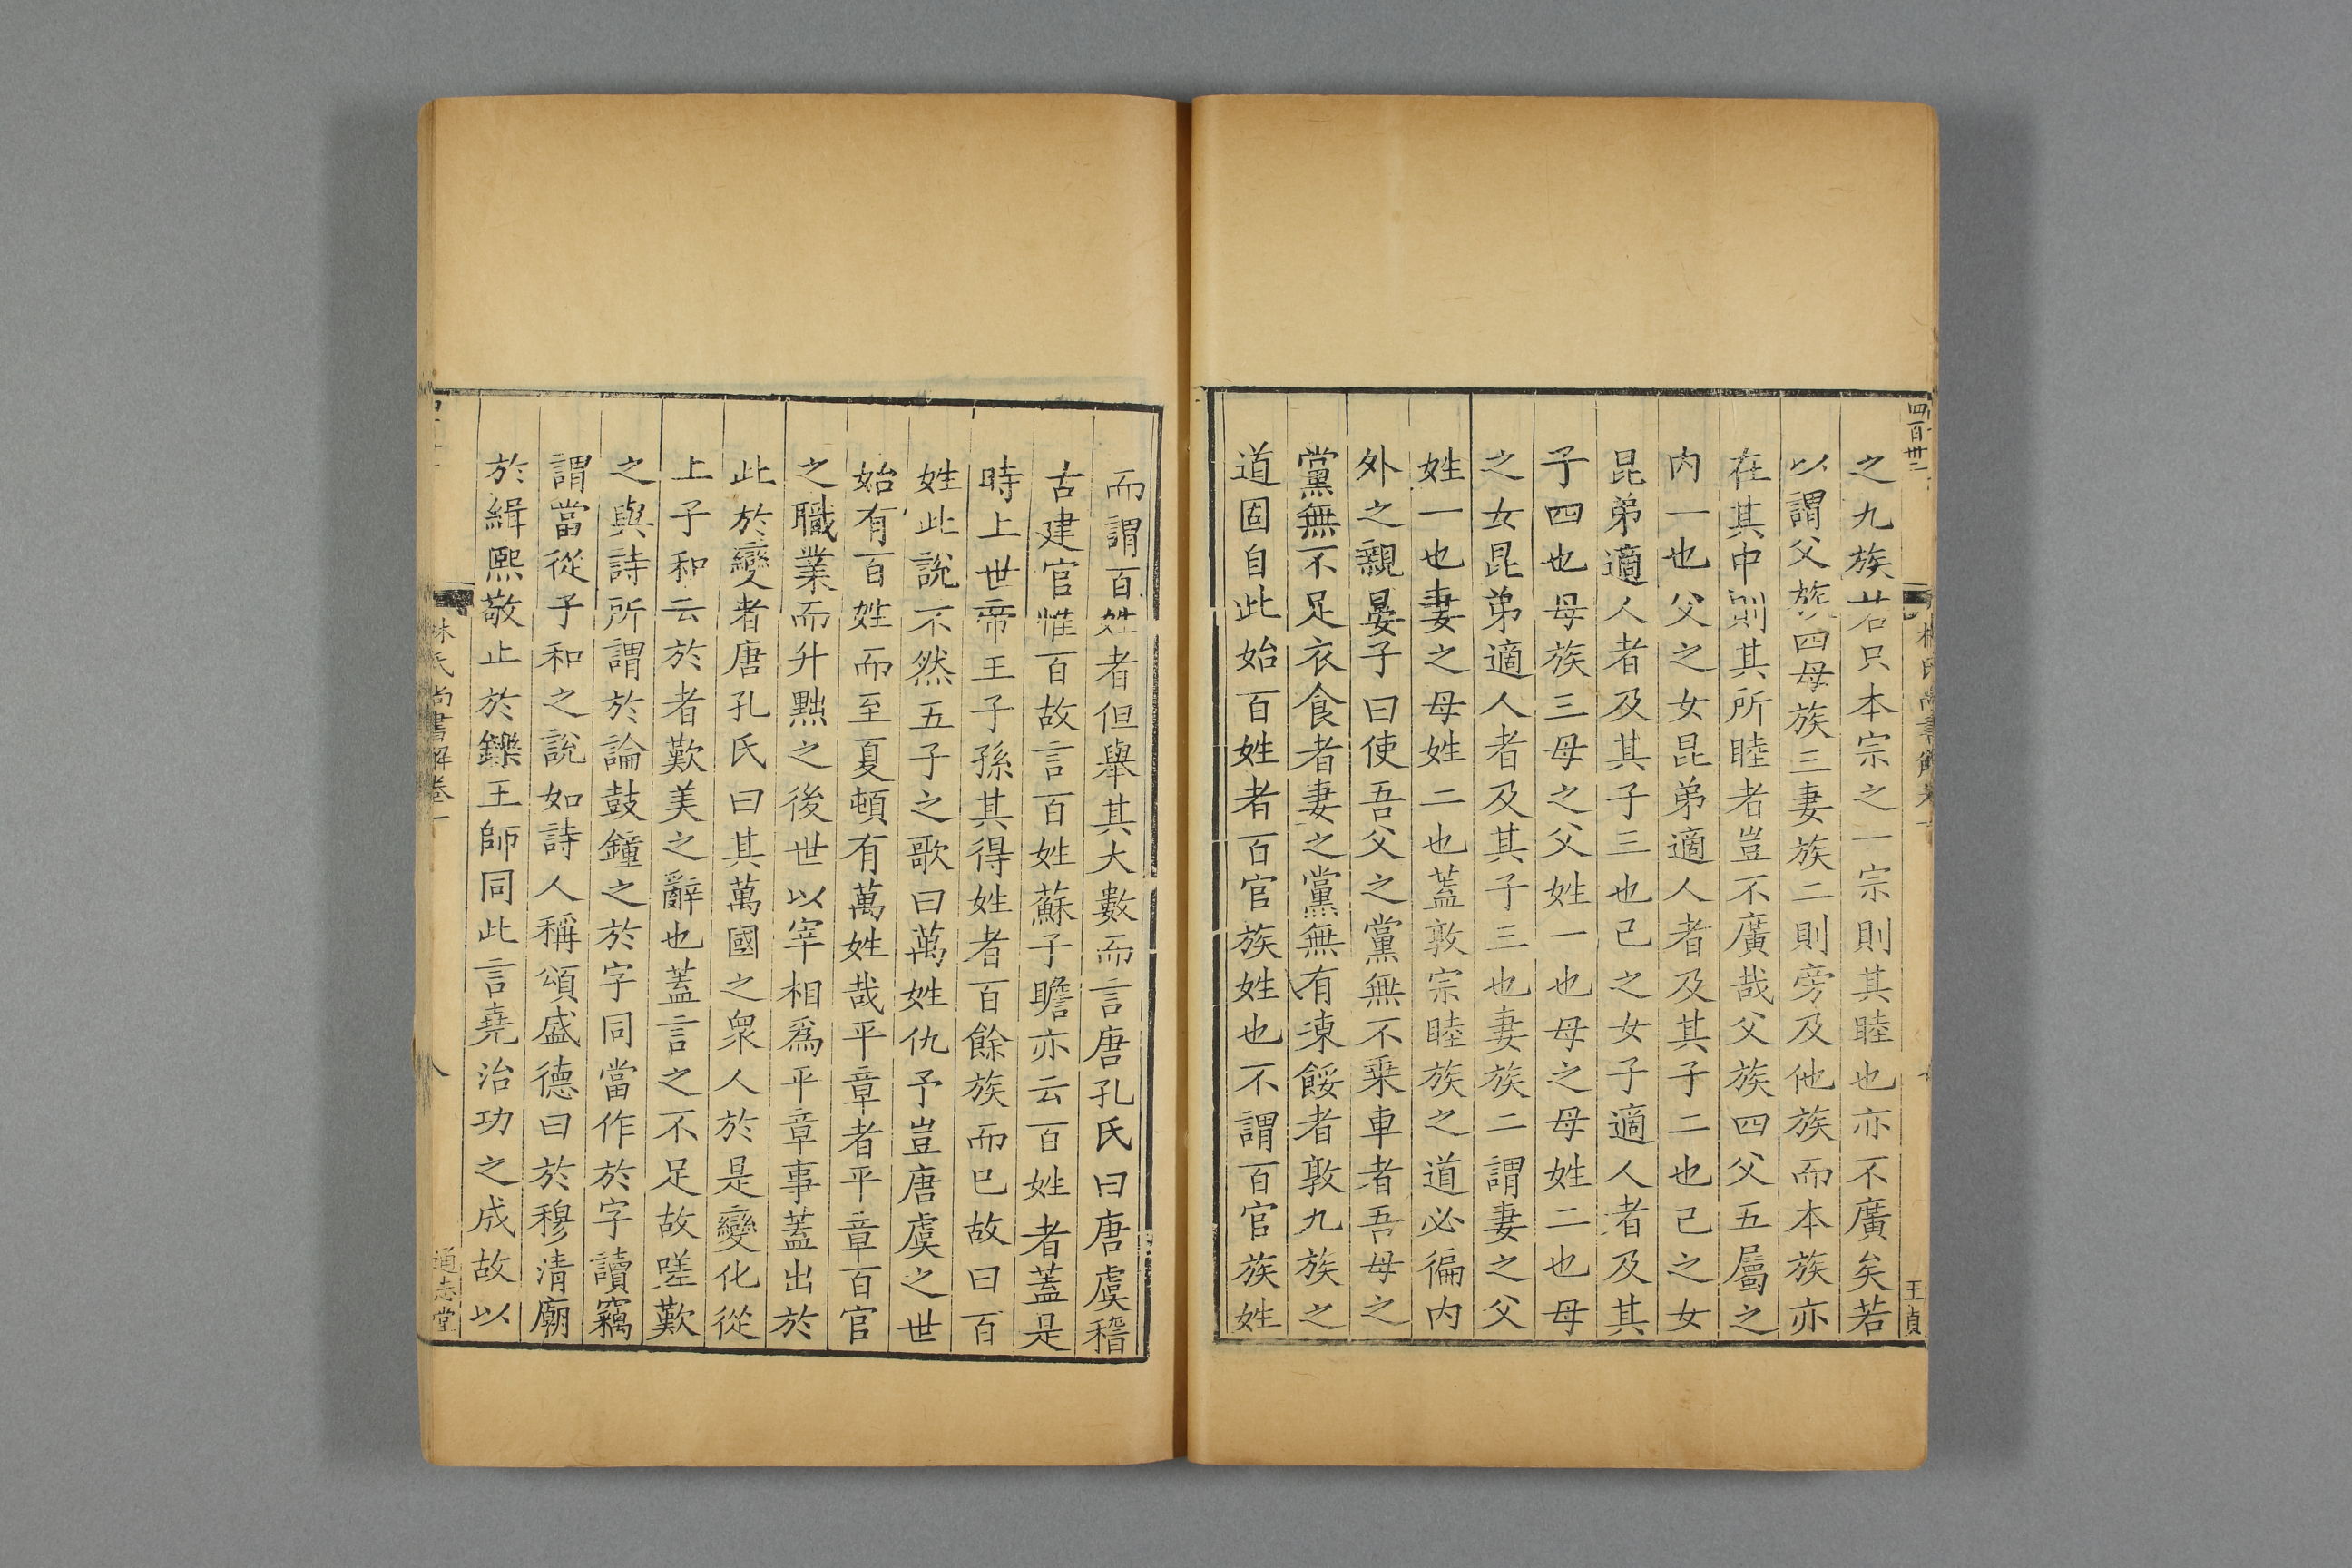 四百卅二
林氏尚書解卷一
王貞
之九族若只本宗之一宗則其睦也亦不廣矣若
以謂父族四母族三妻族二則旁及他族而本族亦
在其中則其所睦者豈不廣哉父族四父五屬之
内一也父之女昆弟適人者及其子二也己之女
昆弟適人者及其子三也己之女子適人者及其
子四也母族三母之父姓一也母之母姓二也母
之女昆弟適人者及其子三也妻族二謂妻之父
姓一也妻之母姓二也蓋敦宗睦族之道必徧内
外之親晏子曰使吾父之黨無不乗車者吾母之
黨無不足衣食者妻之黨無有凍餒者敦九族之
道固自此始百姓者百官族姓也不謂百官族姓
而謂百姓者但舉其大數而言唐孔氏曰唐虞稽
古建官惟百故言百姓蘇子瞻亦云百姓者蓋是
時上世帝王子孫其得姓者百餘族而已故曰百
姓此說不然五子之歌曰萬姓仇予豈唐虞之世
始有百姓而至夏頓有萬姓哉平章者平章百官
之職業而升黜之後世以宰相爲平章事蓋出於
此於變者唐孔氏曰其萬國之衆人於是變化從
上子和云於者歎美之辭也蓋言之不足故嗟歎
之與詩所謂於論鼓鐘之於字同當作於字讀竊
謂當從子和之說如詩人稱頌盛德曰於穆清廟
於緝熙敬止於鑠王師同此言堯治功之成故以
林氏尚書解卷一
八
通志堂